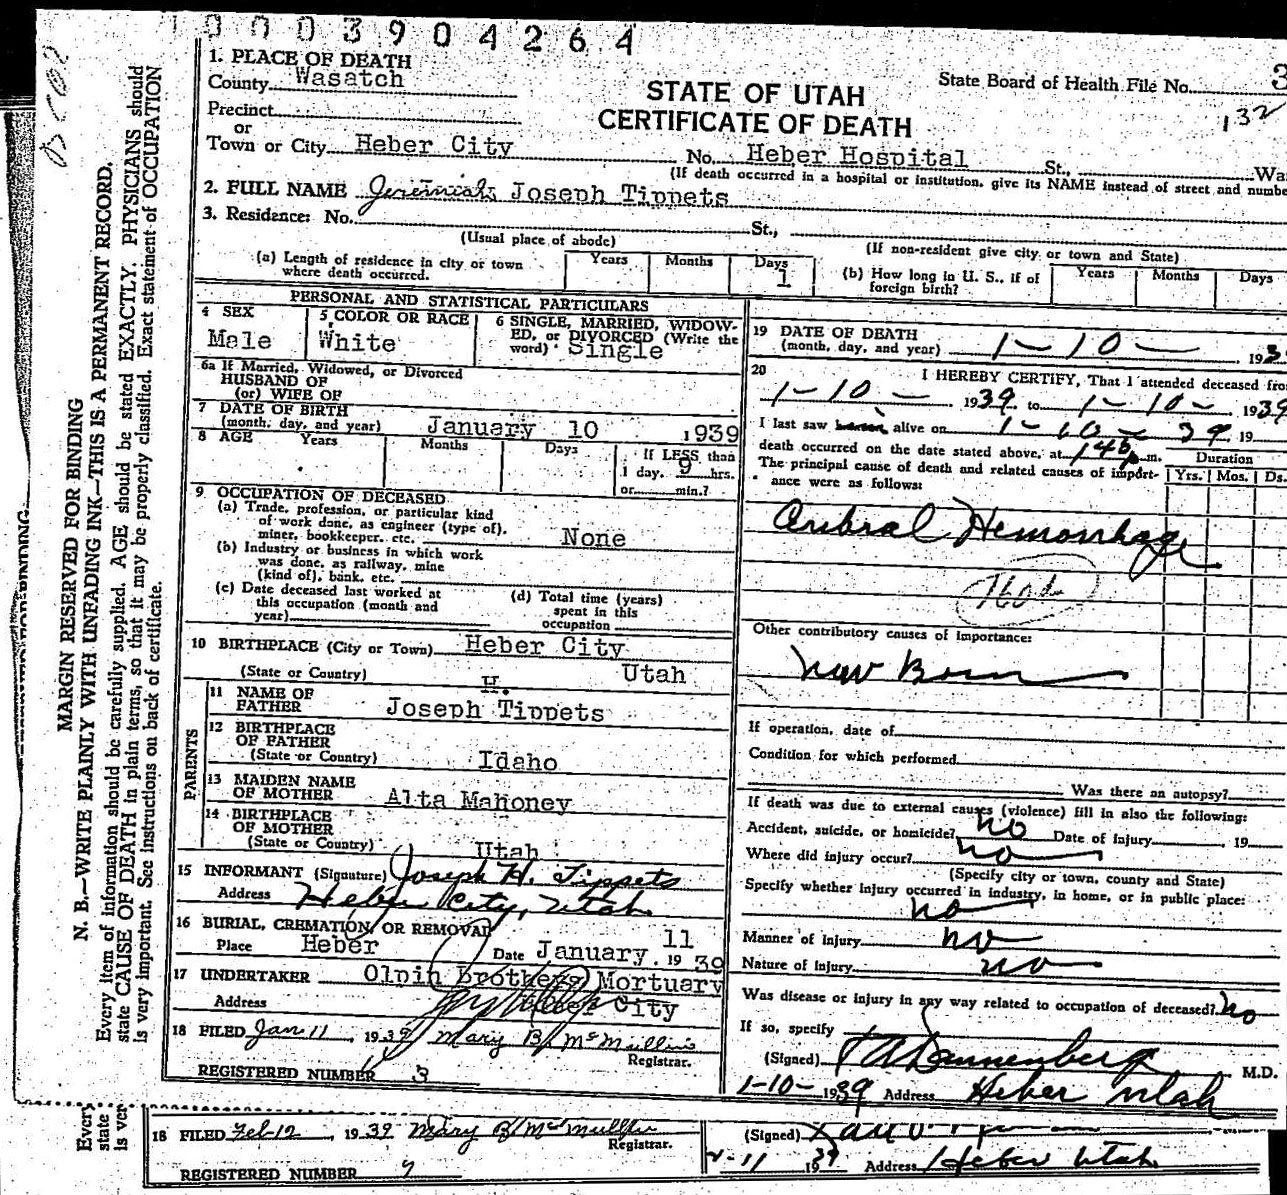 0003904264
1. PLACE OF DEATH
County Wasatch
STATE OF UTAH
CERTIFICATE OF DEATH
State Board of Health File No. 3
132
Precinct
or
Town or City Heber City No. Heber Hospital St., Wa
(If death occurred in a hospital or institution, give its NAME instead of street and numbe
2. FULL NAME Jeremiah Joseph Tippets
3. Residence: No. St.,
(Usual place of abode) (If non-resident give city or town and State)
(a) Length of residence in city or town where death occurred. Years Months Days 1
(b) How long in U. S., if of foreign birth? Years Months Days
PERSONAL AND STATISTICAL PARTICULARS
4 SEX
Male
5 COLOR OR RACE
White
6 SINGLE, MARRIED, WIDOW-
ED, or DIVORCED (Write the
word) Single
6a If Married, Widowed, or Divorced
HUSBAND OF
(or) WIFE OF
7 DATE OF BIRTH
(month, day, and year) January 10 1939
8 AGE Years Months Days If LESS than
1 day, 9 hrs.
or min.?
9 OCCUPATION OF DECEASED
(a) Trade, profession, or particular kind
of work done, as engineer (type of),
miner, bookkeeper, etc. None
(b) Industry or business in which work
was done, as railway, mine
(kind of), bank, etc.
(c) Date deceased last worked at
this occupation (month and
year)
(d) Total time (years)
spent in this
occupation
10 BIRTHPLACE (City or Town) Heber City
(State or Country) Utah
PARENTS
11 NAME OF
FATHER Joseph H. Tippets
12 BIRTHPLACE
OF FATHER
(State or Country) Idaho
13 MAIDEN NAME
OF MOTHER Alta Mahoney
14 BIRTHPLACE
OF MOTHER
(State or Country) Utah
15 INFORMANT (Signature) Joseph H. Tippets
Address Heber City, Utah
16 BURIAL, CREMATION, OR REMOVAL
Place Heber Date January 11 1939
17 UNDERTAKER Olpin Brothers Mortuary
Address Heber City
18 FILED Jan 11, 1939 Mary B McMullin
Registrar.
REGISTERED NUMBER 3
19 DATE OF DEATH
(month, day, and year) 1-10-, 193
20 I HEREBY CERTIFY, That I attended deceased fro
1-10- 1939 to 1-10- 1939
I last saw him alive on 1-10-39, 19
death occurred on the date stated above, at 145 p.m. Duration
The principal cause of death and related causes of import-
ance were as follows: Yrs. Mos. Ds.
Cerebral Hemorrhage
160d
Other contributory causes of importance:
New Born
If operation, date of
Condition for which performed
Was there an autopsy?
If death was due to external causes (violence) fill in also the following:
Accident, suicide, or homicide? no Date of injury , 19
Where did injury occur? no
(Specify city or town, county and State)
Specify whether injury occurred in industry, in home, or in public place:
no
Manner of injury no
Nature of injury no
Was disease or injury in any way related to occupation of deceased? no
If so, specify
(Signed) Dannenberg M.D.
1-10-1939 Address Heber Utah
18 FILED Feb 12, 1939 Mary B McMullin
Registrar.
REGISTERED NUMBER 7
(Signed)
2-11 1939 Address Heber Utah
MARGIN RESERVED FOR BINDING
N. B.—WRITE PLAINLY WITH UNFADING INK—THIS IS A PERMANENT RECORD.
Every item of information should be carefully supplied. AGE should be stated EXACTLY. PHYSICIANS should
state CAUSE OF DEATH in plain terms, so that it may be properly classified. Exact statement of OCCUPATION
is very important. See instructions on back of certificate.
Every
state
is ver